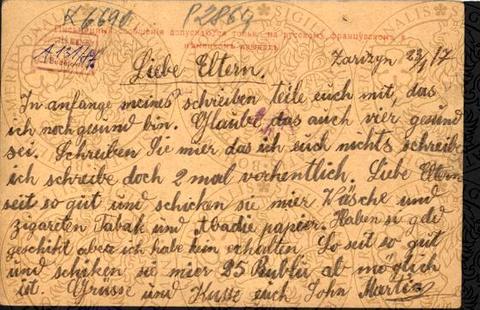 K 6690 P2869
Письменныя сообщенія допускаются только на русскомъ, французскомъ и
нѣмецкомъ языкахъ
A. 131/187
Zarizyn 23/ 17
Liebe Eltern.
In anfange meines schreiben teile euch mit, das
ich noch gesund bin. Glaube das auch vier gesund
sei. Schreiben Sie mier das ich euch nichts schreibe
ich schreibe doch 2 mal vochentlich. Liebe Eltern
seit so gut und schicken sie mier Wäsche und
zigareten Tabak und Abadie papier. Haben si geld
geschikt aber ich habe kein erhalten So seit so gut
und schiken sie mier 25 Rublii al möglich
ist. Grüsse und Kusse euch John Martin